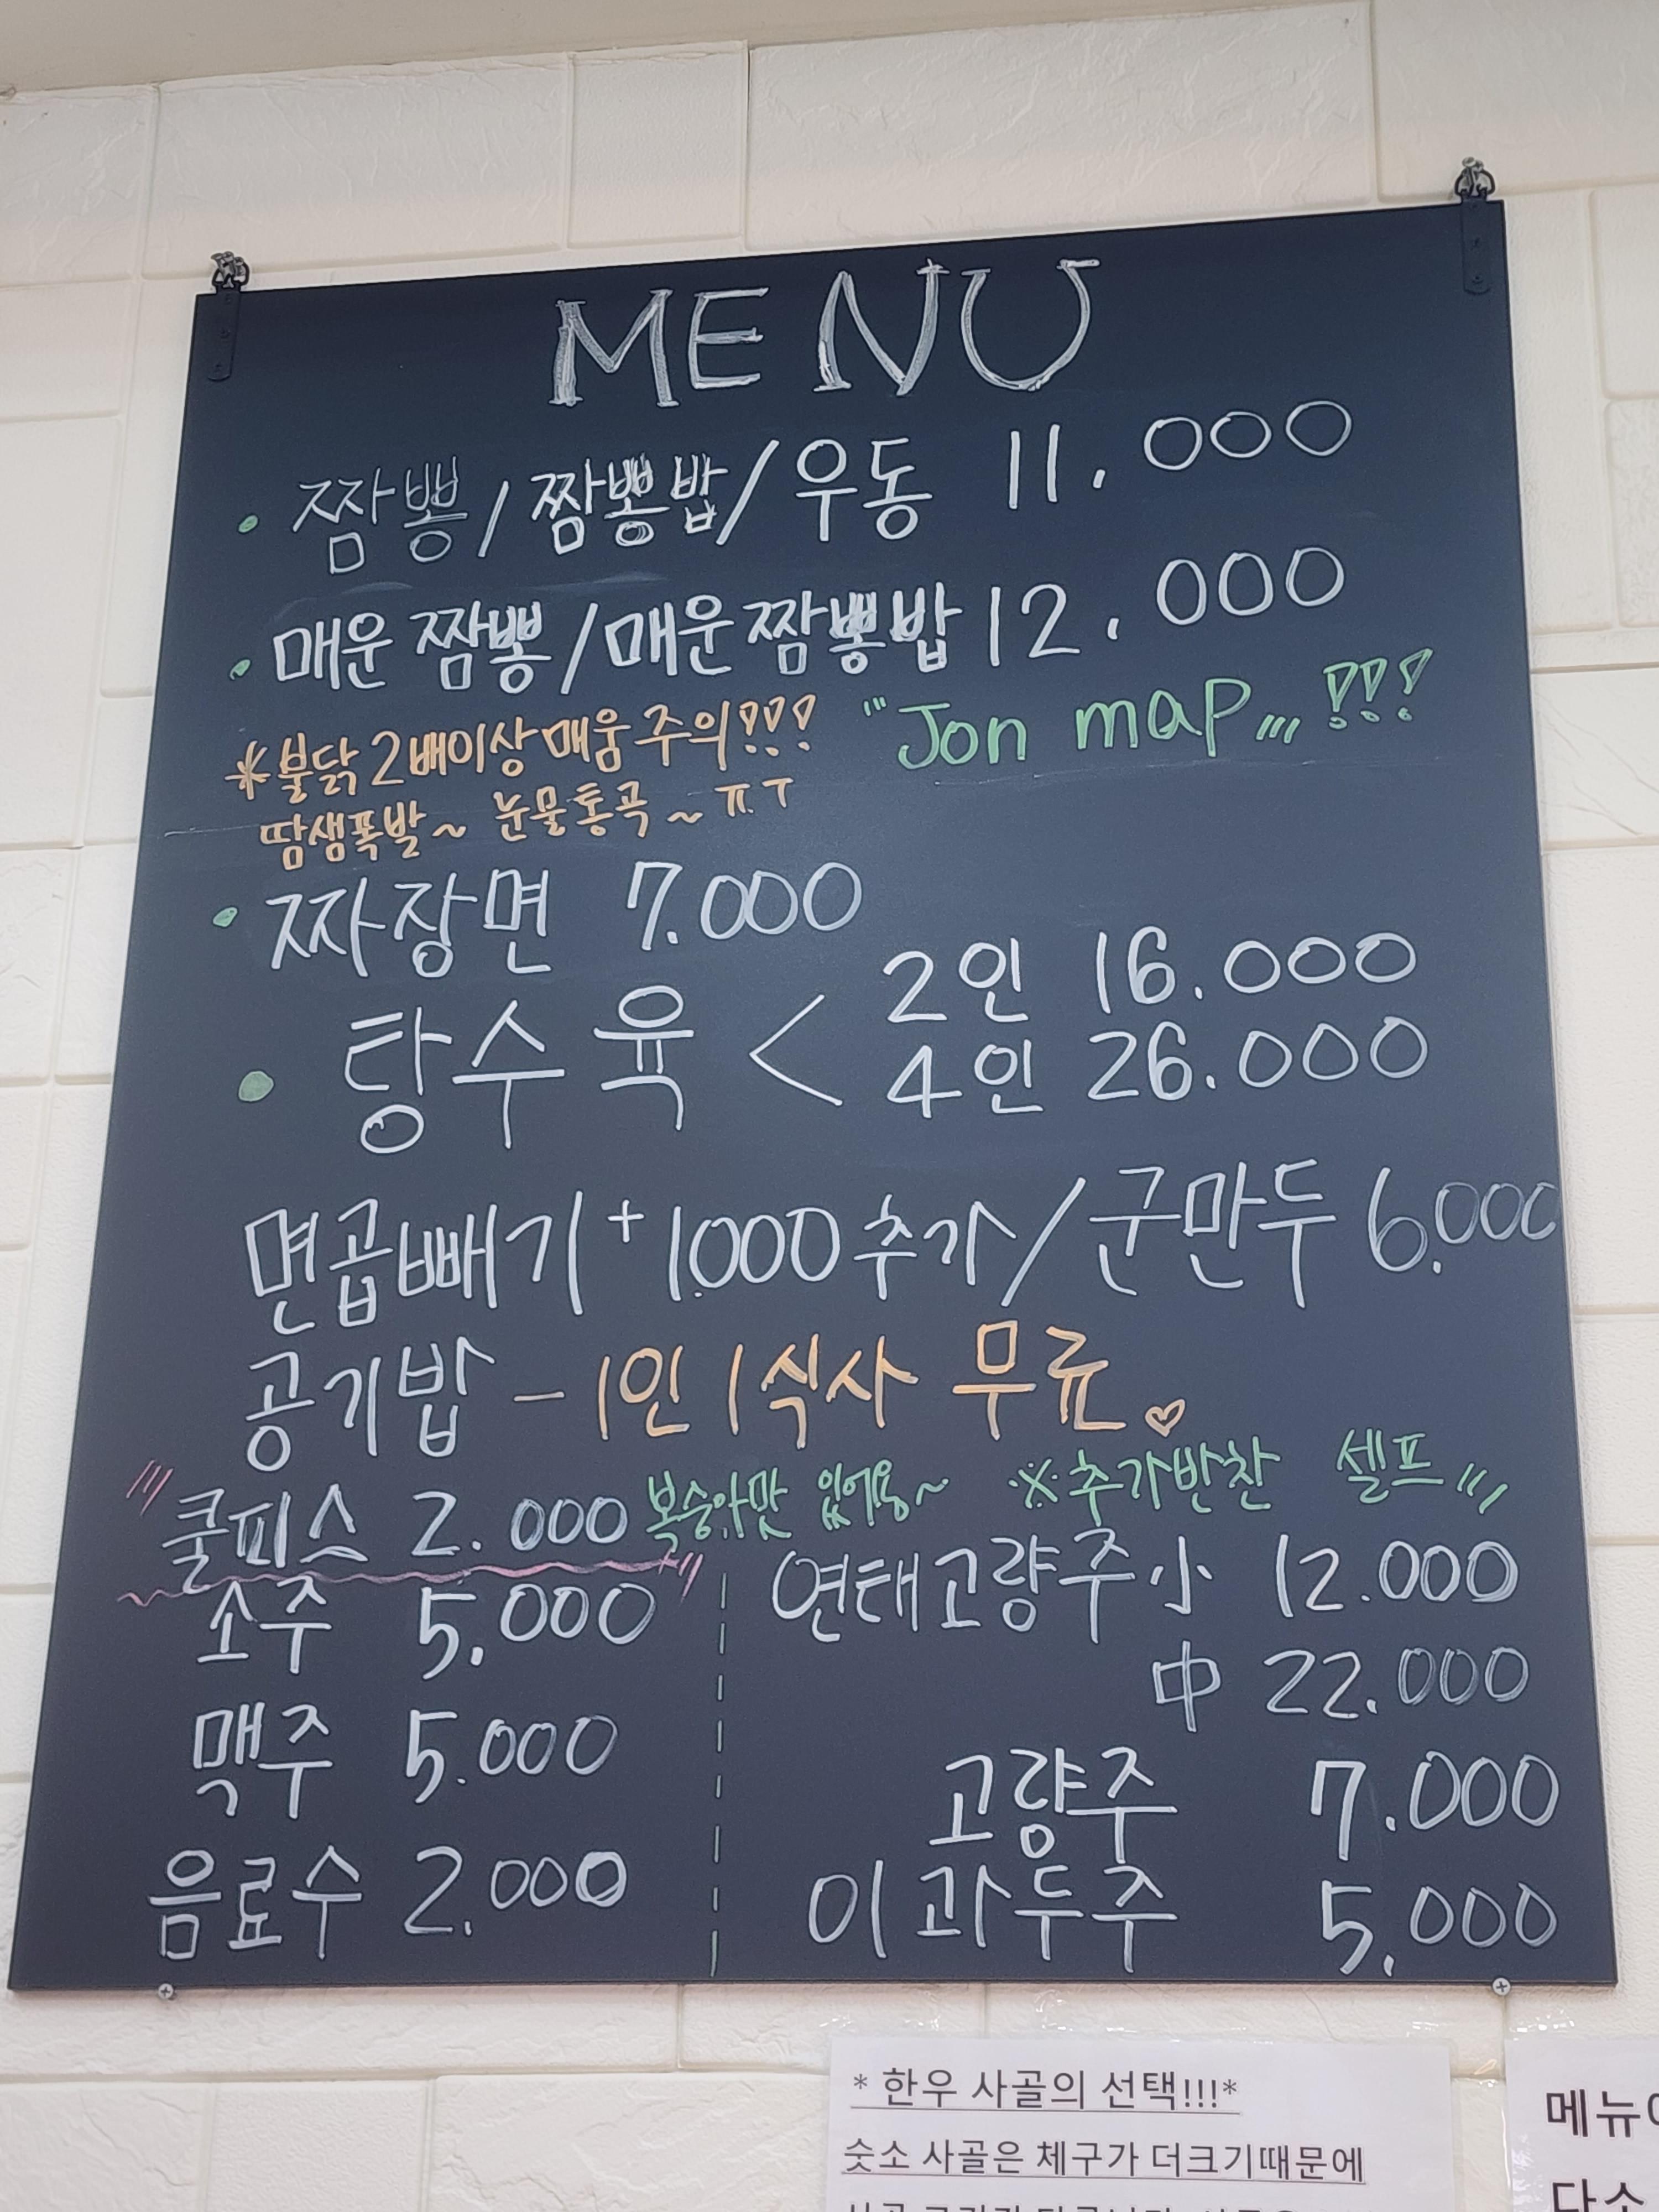 MENU
• 짬뽕/짬뽕밥/우동 11.000
• 매운짬뽕/매운짬뽕밥 12.000
*불닭2배이상매움주의!!! "Jon map,,, !!!
땀샘폭발~ 눈물통곡~ㅠㅜ
• 짜장면 7.000
• 탕수육 < 2인 16.000
4인 26.000
면곱빼기+1.000추가/군만두 6.000
공기밥 - 1인 1식사 무료♡
쿨피스 2.000 복숭아맛 있어용~ ※추가반찬 셀프
소주 5.000
맥주 5.000
음료수 2.000
연태고량주小 12.000
中 22.000
고량주 7.000
이과두주 5.000
* 한우 사골의 선택!!!*
숫소 사골은 체구가 더크기때문에
메뉴